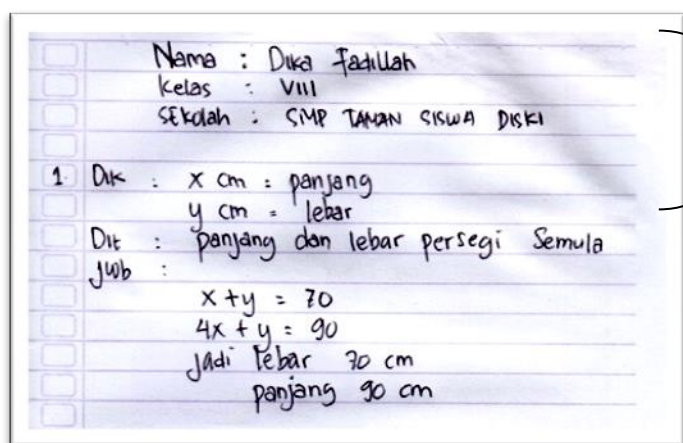 Nama : Dika Fadillah
Kelas : VIII
SEkolah : SMP TAMAN SISWA DISKI
1. Dik : x cm = panjang
y cm = lebar
Dit : panjang dan lebar persegi Semula
jwb :
x + y = 70
4x + y = 90
jadi lebar 70 cm
panjang 90 cm